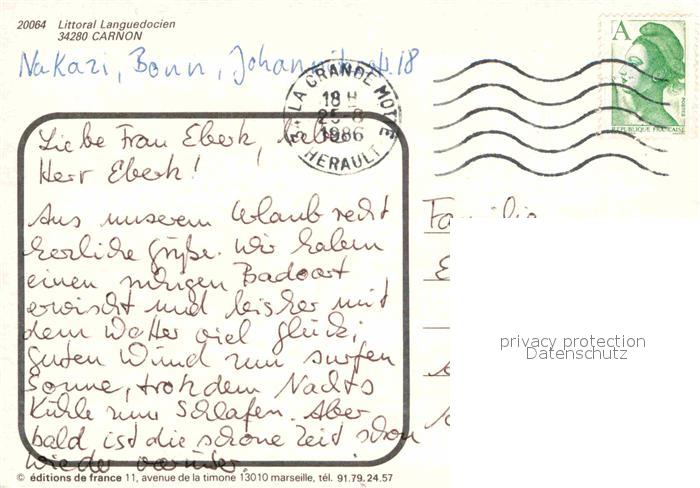 20064 Littoral Languedocien
34280 CARNON
Nakazi, Bonn, Johannitstr. 18
34 LA GRANDE MOTTE
18 H
25-8
1986
HERAULT
A
REPUBLIQUE FRANCAISE
POSTES
Liebe Frau Eberk, lieber
Herr Eberk!
Aus unserem Urlaub recht
herzliche Grüße. Wir haben
einen ruhigen Badeort
erwischt und bisher mit
dem Wetter viel Glück;
Guten Wind zum surfen
Sonne, trotzdem Nachts
Kühle zum Schlafen. Aber
bald ist die schöne Zeit schon
wieder vorüber.
Familie
privacy protection
Datenschutz
© éditions de france 11, avenue de la timone 13010 marseille, tél. 91.79.24.57